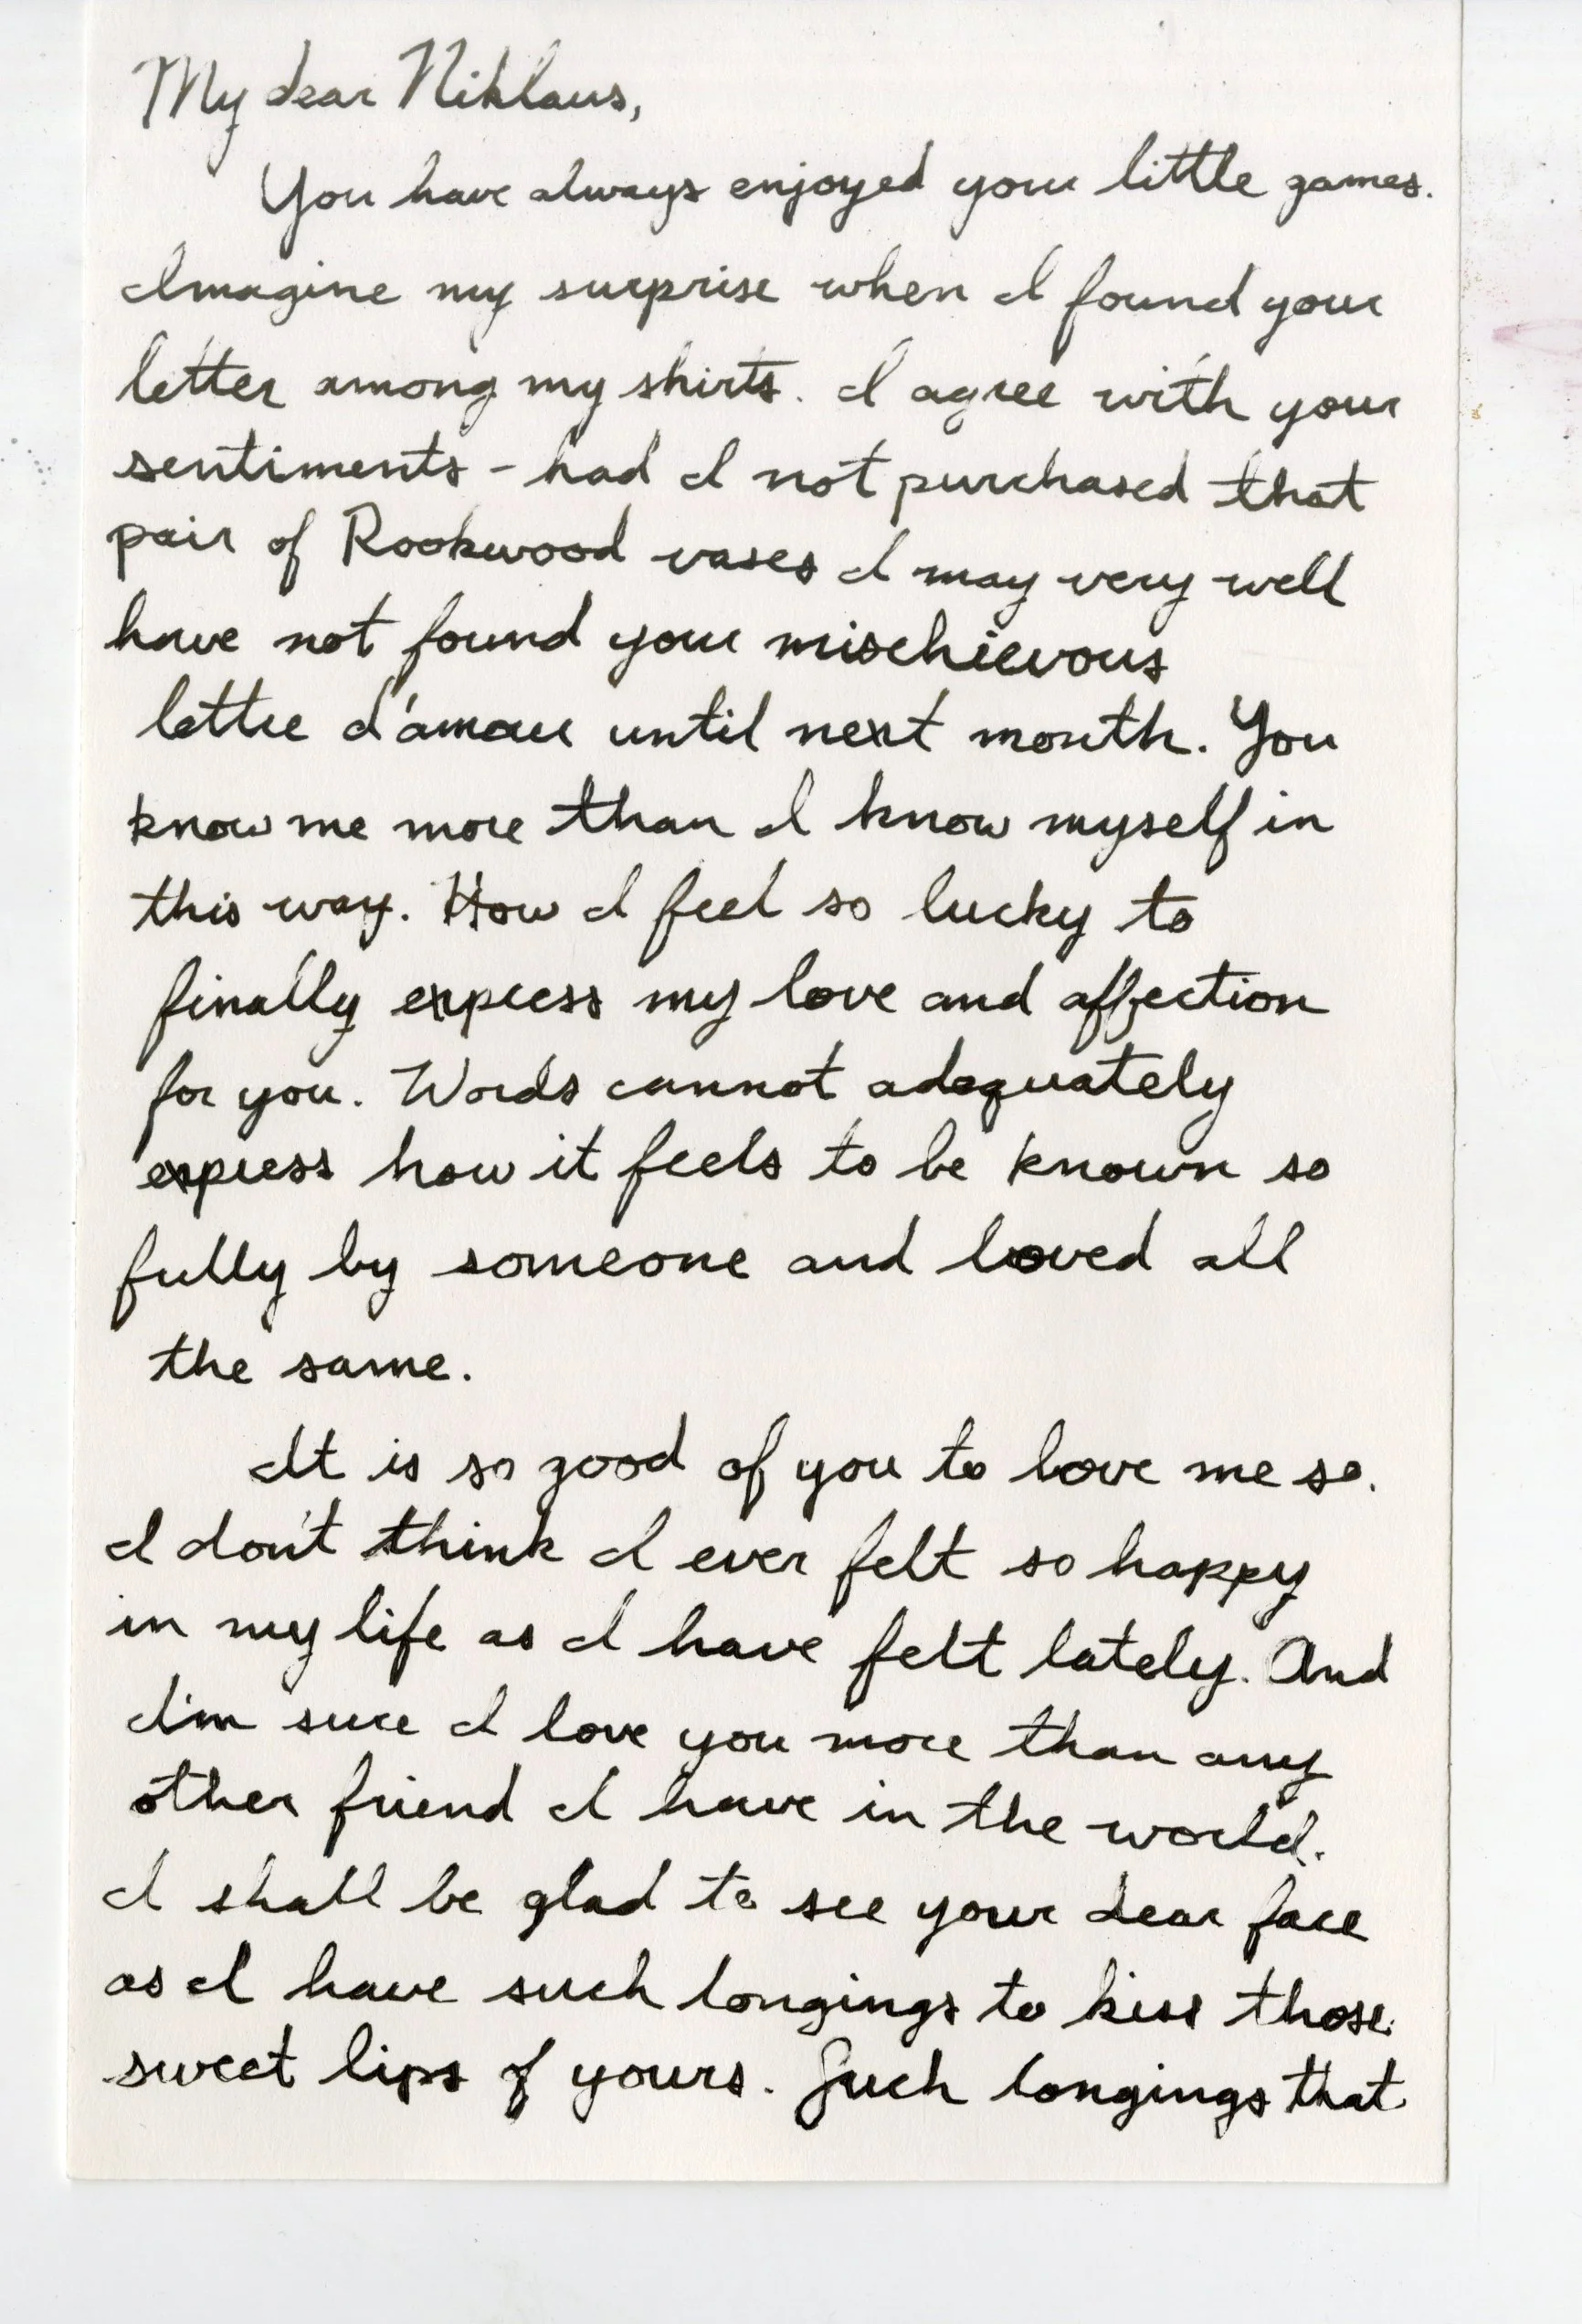 My dear Niklaus,
You have always enjoyed your little games.
Imagine my surprise when I found your
letter among my shirts. I agree with your
sentiments - had I not purchased that
pair of Rookwood vases I may very well
have not found your mischievous
lettre d'amour until next month. You
know me more than I know myself in
this way. How I feel so lucky to
finally express my love and affection
for you. Words cannot adequately
express how it feels to be known so
fully by someone and loved all
the same.
It is so good of you to love me so.
I don't think I ever felt so happy
in my life as I have felt lately. And
I'm sure I love you more than any
other friend I have in the world.
I shall be glad to see your dear face
as I have such longings to kiss those
sweet lips of yours. Such longings that